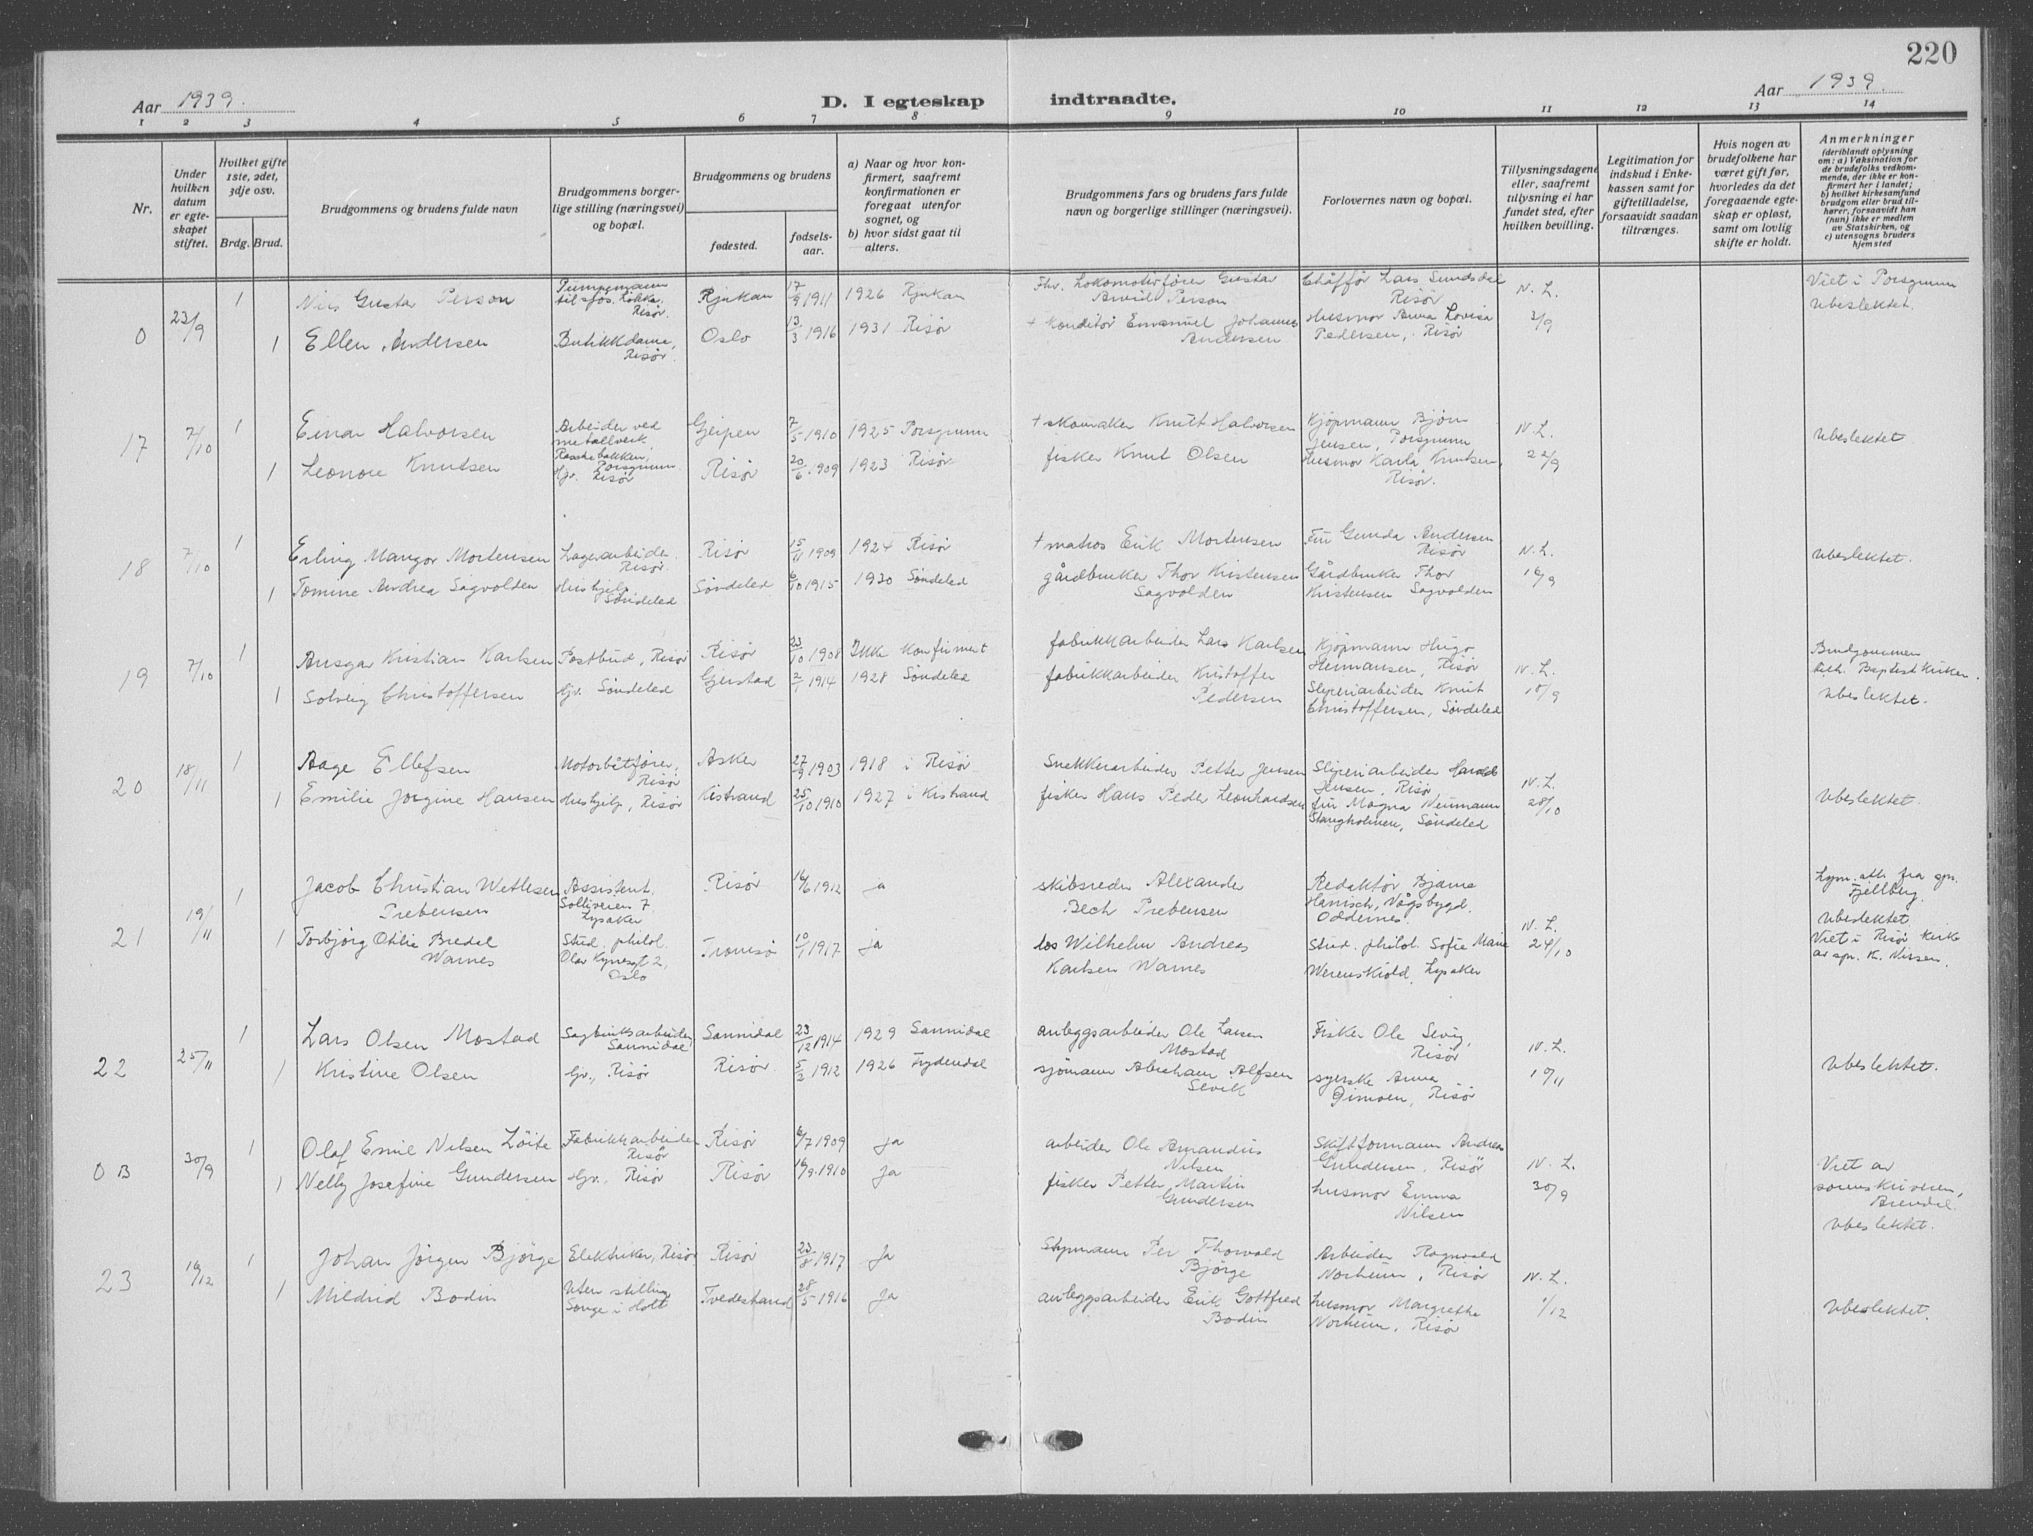 220
Aar 1939.
D. I egteskap indtraadte.
Aar 1939.
1 2 3 4 5 6 7 8 9 10 11 12 13 14
Nr.
Under hvilken datum er egteskapet stiftet.
Hvilket gifte 1ste, 2det, 3dje osv.
Brdg. Brud.
Brudgommens og brudens fulde navn
Brudgommens borgerlige stilling (næringsvei) og bopæl.
Brudgommens og brudens
fødested. fødselsaar.
a) Naar og hvor konfirmert, saafremt konfirmationen er foregaat utenfor sognet, og
b) hvor sidst gaat til alters.
Brudgommens fars og brudens fars fulde navn og borgerlige stillinger (næringsvei).
Forlovernes navn og bopæl.
Tillysningsdagene eller, saafremt tillysning ei har fundet sted, efter hvilken bevilling.
Legitimation for indskud i Enkekassen samt for giftetilladelse, forsaavidt saadan tiltrænges.
Hvis nogen av brudefolkene har været gift før, hvorledes da det foregaaende egteskap er opløst, samt om lovlig skifte er holdt.
Anmerkninger
(deriblandt oplysning om: a) Vaksination for de brudefolks vedkommende, der ikke er konfirmert her i landet; b) hvilket kirkesamfund brudgom eller brud tilhører, forsaavidt han (hun) ikke er medlem av Statskirken, og c) utensogns bruders hjemsted
0 23/9 1 Nils Gustav Person Pumpemann til sjøs. Risør. Rjukan 17/9 1911 1926 Rjukan Fhv. Lokomotivfører Gustav Arvid Person Chåffør Lars Sundsdal Risør N. L. Viet i Porsgrunn ubeslektet.
1 Ellen Andersen Butikkdame, Risør. Oslo 13/3 1916 1931 Risør + Konditor Emanuel Johannes Andersen Husmor Anna Lovisa Pedersen, Risør 2/9
17 7/10 1 Einar Halvorsen Arbeider ved metallverk, Porsgrunn Gjerpen 7/5 1910 1925 Porsgrunn + skomaker Knut Halvorsen Kjøpmann Bjørn Jensen, Porsgrunn N. L. ubeslektet
1 Leonore Knutsen Hjv. Risör Risör 20/6 1909 1923 Risör fisker Knut Olsen Husmor Karla Knutsen, Risör. 22/9
18 7/10 1 Erling Mangor Mortensen Lagerarbeider. Risør. Risør 15/11 1909 1924 Risør + matros Erik Mortensen Fru Gunda Andersen Risør N. L. ubeslektet.
1 Tomine Andrea Sagvolden Hushjelp Søndeled Søndeled 6/10 1915 1930 Søndeled gårdbruker Thor Kristensen Sagvolden Gårdbruker Thor Kristensen Sagvolden 16/9
19 7/10 1 Ansgar Kristian Karlsen Postbud, Risør Risør 23/10 1908 Ikke konfirmert fabrikkarbeider Lars Karlsen Kjøpmann Hugo Hermansen, Risør N. L. Brudgommen tilh. Baptist Kirken.
1 Solveig Christoffersen Hjv. Søndeled Gjerstad 2/1 1914 1928 Søndeled fabrikkarbeider Kristoffer Pedersen Sliperiarbeider Knut Christoffersen, Søndeled 18/9 ubeslektet.
20 18/11 1 Aage Ellefsen Motorbåtfører, Risør Asker 27/9 1903 1918 i Risør Snekkerarbeider Petter Jensen Sliperiarbeider Harald Jensen, Risør N. L.
1 Emilie Jorgine Hansen Hushjelp, Risør Kistrand 25/10 1910 1927 i Kistrand fisker Hans Peder Leonhardsen fru Magna Neumann Stangholmen, Søndeled 28/10 ubeslektet.
21 19/11 1 Jacob Christian Wetlesen Prebensen Assistent. Solliveien 7 Lysaker Risør 16/6 1912 ja skibsreder Alexander Bech Prebensen Redaktør Bjarne Hanisch, Vågsbygd. Oddernes. N. L. Lysn. att. fra spr. Fjellberg. ubeslektet
1 Torbjörg Otilie Bredal Warnes Stud. philol. Olav Kyrresgt 2, Oslo Tromsø 10/1 1917 ja los Wilhelm Andreas Karlsen Warnes Stud. philol. Sofie Marie Werenskiold, Lysaker 24/10 Viet i Risør Kirke av spr. K. Nilsen.
22 25/11 1 Lars Olsen Mostad Sagbruksarbeider, Sannidal Sannidal 23/12 1914 1929 Sannidal anleggsarbeider Ole Larsen Mostad Fisker Ole Sevig, Risør N. L.
1 Kristine Olsen Hjv., Risør Risør 5/2 1912 1926 Frydendal sjømann Abraham Alfsen Sevik syerske Anna Dimoen, Risör 10/11 ubeslektet.
0 B 30/9 1 Olaf Emil Nilsen Löite Fabrikkarbeider Risör Risör 6/7 1909 ja arbeider Ole Amandus Nilsen Skiftformann Andreas Gundersen, Risör N. L. Viet av sorenskriveren, Arendal
1 Nelly Josefine Gundersen Hjv., Risör Risör 16/9 1910 ja fisker Petter Martin Gundersen husmor Emma Nilsen 30/9 ubeslektet.
23 16/12 1 Johan Jörgen Björge Elektriker, Risør Risør 23/8 1917 Ja Styrmann Per Thorvald Björge Arbeider Ragnvald Norheim, Risør N. L.
1 Mildrid Bodin Uten stilling Songe i Holt Tvedestrand 28/5 1916 Ja anleggsarbeider Erik Gottfred Bodin husmor Margrethe Norheim, Risør 1/12 ubeslektet.